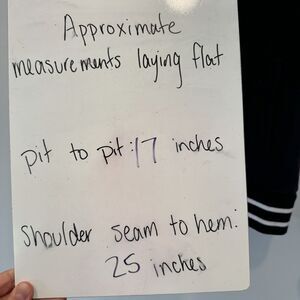 Approximate
measurements laying flat
pit to pit: 17 inches
shoulder seam to hem:
25 inches